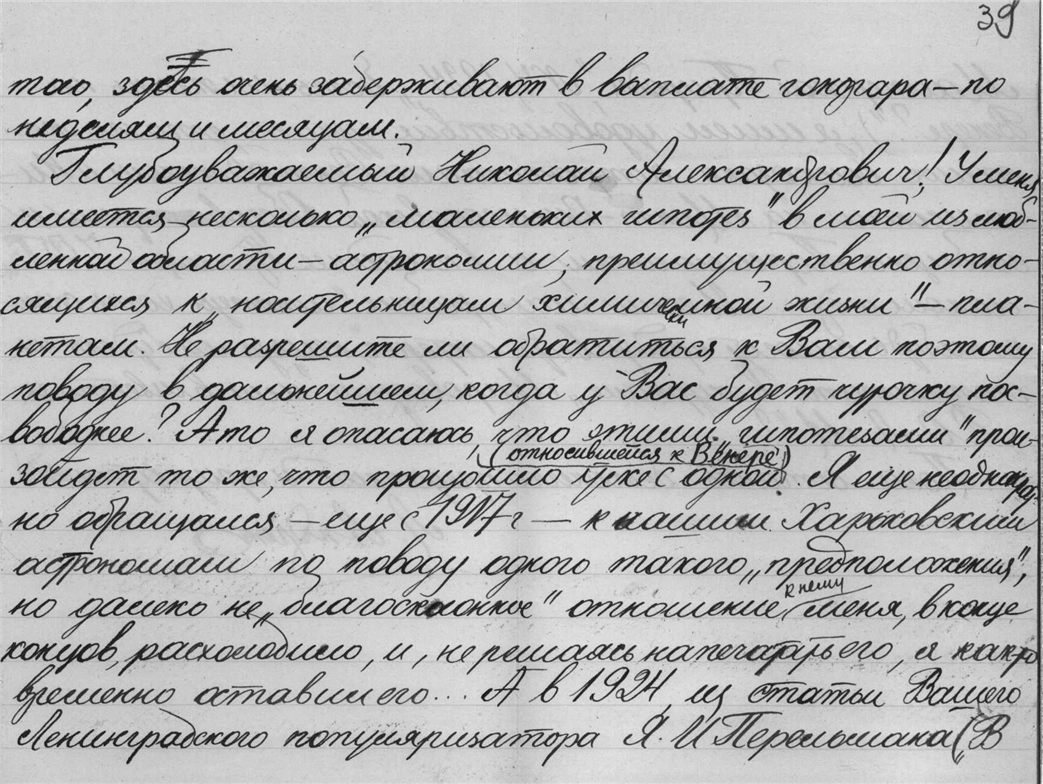 39
того, здесь очень задерживают в выплате гонорара — по
неделям и месяцам.
Глубоуважаемый Николай Александрович! У меня
имеется несколько „маленьких гипотез" в моей излюб-
ленной области — астрономии, преимущественно отно-
сящихся к „носительницам химической жизни" — пла-
нетам. Не разрешите ли обратиться к Вам по этому
поводу в дальнейшем, когда у Вас будет чуточку пос-
вободнее? А то я опасаюсь, что этими „гипотезами" прои-
(относившейся к Венере)
зойдет то же, что произошло уже с одной. Я еще неоднократ-
но обращался — еще с 1917 г — к нашим Харьковским
астрономам по поводу одного такого „предположения",
к нему
но далеко не „благосклонное" отношение меня, в конце
концов, расхолодило, и, не решаясь напечатать его, я как-то
временно оставил его... А в 1924, из статьи Вашего
Ленинградского популяризатора Я. И Перельмана („В